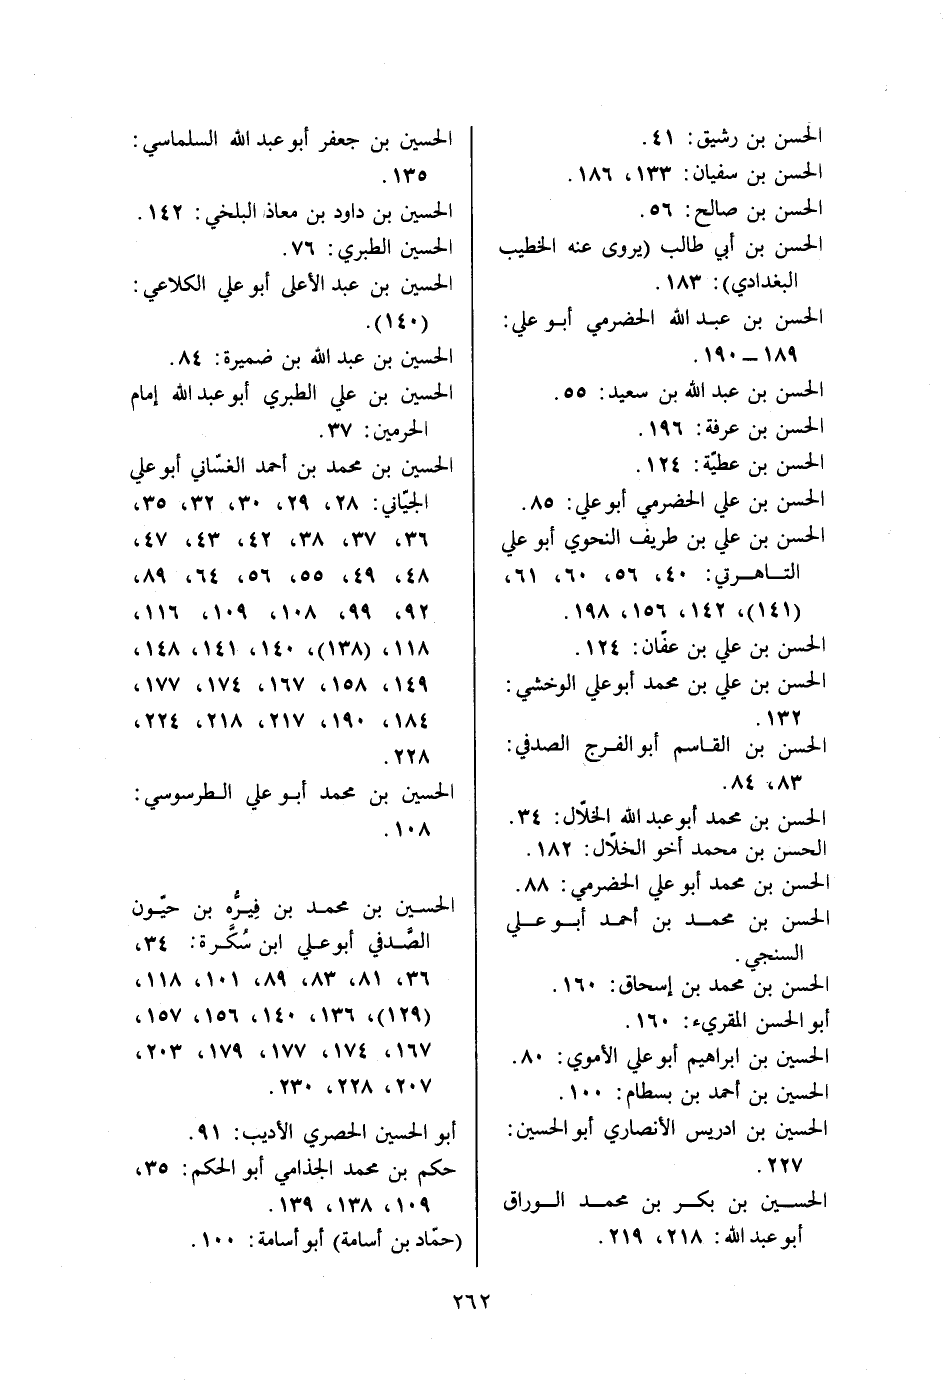 الحسن بن رشيق: ٤١.
الحسن بن سفيان: ١٣٣، ١٨٦.
الحسن بن صالح: ٥٦.
الحسن بن أبي طالب (يروى عنه الخطيب
البغدادي): ١٨٣.
الحسن بن عبد الله الحضرمي أبو علي:
١٨٩ – ١٩٠.
الحسن بن عبد الله بن سعيد: ٥٥.
الحسن بن عرفة: ١٩٦.
الحسن بن عطيّة: ١٢٤.
الحسن بن علي الحضرمي أبو علي: ٨٥.
الحسن بن علي بن طريف النحوي أبو علي
التاهرتي: ٤٠، ٥٦، ٦٠، ٦١،
(١٤١)، ١٤٢، ١٥٦، ١٩٨.
الحسن بن علي بن عفّان: ١٢٤.
الحسن بن علي بن محمد أبو علي الوخشي:
١٣٢.
الحسن بن القاسم أبو الفرج الصدفي:
٨٣، ٨٤.
الحسن بن محمد أبو عبد الله الخلّال: ٣٤.
الحسن بن محمد أخو الخلّال: ١٨٢.
الحسن بن محمد أبو علي الحضرمي: ٨٨.
الحسن بن محمد بن أحمد أبو علي
السنجي.
الحسن بن محمد بن إسحاق: ١٦٠.
أبو الحسن المقريء: ١٦٠.
الحسين بن ابراهيم أبو علي الأموي: ٨٠.
الحسين بن أحمد بن بسطام: ١٠٠.
الحسين بن ادريس الأنصاري أبو الحسين:
٢٢٧.
الحسين بن بكر بن محمد الوراق
أبو عبد الله: ٢١٨، ٢١٩.
الحسين بن جعفر أبو عبد الله السلماسي:
١٣٥.
الحسين بن داود بن معاذ البلخي: ١٤٢.
الحسين الطبري: ٧٦.
الحسين بن عبد الأعلى أبو علي الكلاعي:
(١٤٠).
الحسين بن عبد الله بن ضميرة: ٨٤.
الحسين بن علي الطبري أبو عبد الله إمام
الحرمين: ٣٧.
الحسين بن محمد بن أحمد الغسّاني أبو علي
الجيّاني: ٢٨، ٢٩، ٣٠، ٣٢، ٣٥،
٣٦، ٣٧، ٣٨، ٤٢، ٤٣، ٤٧،
٤٨، ٤٩، ٥٥، ٥٦، ٦٤، ٨٩،
٩٢، ٩٩، ١٠٨، ١٠٩، ١١٦،
١١٨، (١٣٨)، ١٤٠، ١٤١، ١٤٨،
١٤٩، ١٥٨، ١٦٧، ١٧٤، ١٧٧،
١٨٤، ١٩٠، ٢١٧، ٢١٨، ٢٢٤،
٢٢٨.
الحسين بن محمد أبو علي الطرسوسي:
١٠٨.
الحسين بن محمد بن فِيرُّه بن حيّون
الصَّدفي أبو علي ابن سُكَّرة: ٣٤،
٣٦، ٨١، ٨٣، ٨٩، ١٠١، ١١٨،
(١٢٩)، ١٣٦، ١٤٠، ١٥٦، ١٥٧،
١٦٧، ١٧٤، ١٧٧، ١٧٩، ٢٠٣،
٢٠٧، ٢٢٨، ٢٣٠.
أبو الحسين الحصري الأديب: ٩١.
حكم بن محمد الجذامي أبو الحكم: ٣٥،
١٠٩، ١٣٨، ١٣٩.
(حمّاد بن أسامة) أبو أسامة: ١٠٠.
٢٦٢